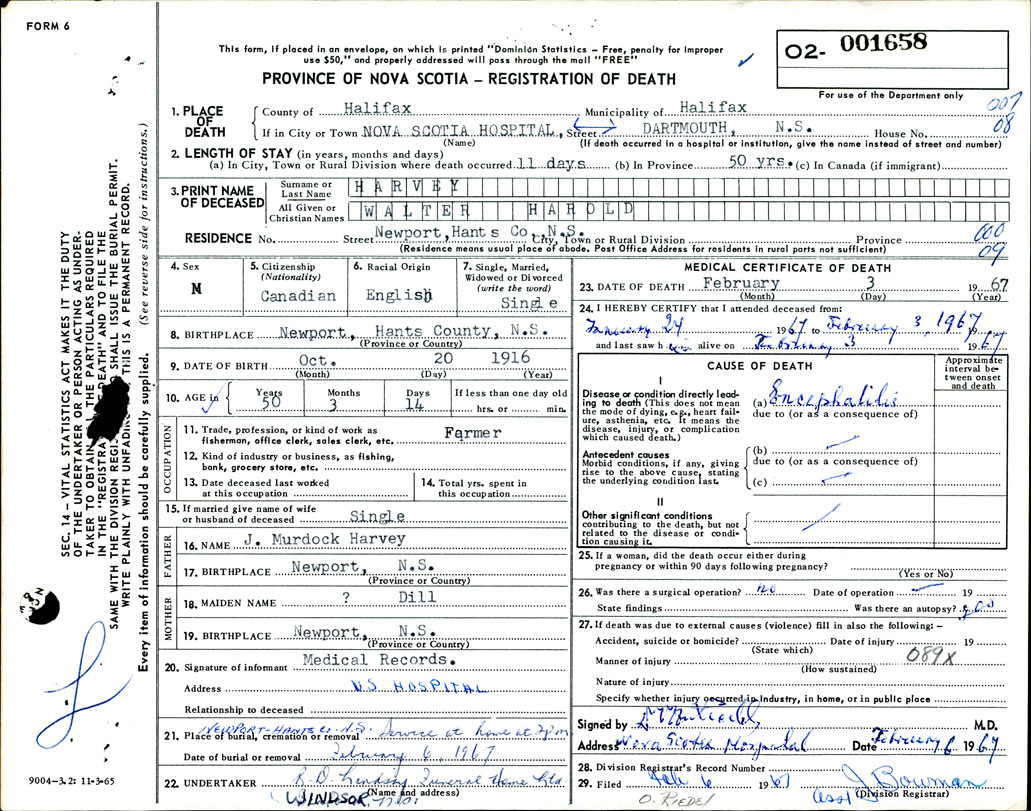 FORM 6
This form, if placed in an envelope, on which is printed "Dominion Statistics – Free, penalty for improper
use $50," and properly addressed will pass through the mail "FREE"
PROVINCE OF NOVA SCOTIA – REGISTRATION OF DEATH
O2- 001658
For use of the Department only
007
08
1. PLACE OF DEATH
County of Halifax Municipality of Halifax
If in City or Town NOVA SCOTIA HOSPITAL, Street DARTMOUTH, N.S. House No.
(Name) (If death occurred in a hospital or institution, give the name instead of street and number)
2. LENGTH OF STAY (in years, months and days)
(a) In City, Town or Rural Division where death occurred 11 days (b) In Province 50 yrs. (c) In Canada (if immigrant)
3. PRINT NAME OF DECEASED
Surname or Last Name HARVEY
All Given or Christian Names WALTER HAROLD
RESIDENCE No. Street Newport, Hants Co., N.S. City, Town or Rural Division Province
(Residence means usual place of abode. Post Office Address for residents in rural parts not sufficient)
000
09
4. Sex
M
5. Citizenship
(Nationality)
Canadian
6. Racial Origin
English
7. Single, Married,
Widowed or Divorced
(write the word)
Single
8. BIRTHPLACE Newport, Hants County, N.S.
(Province or Country)
9. DATE OF BIRTH Oct. 20 1916
(Month) (Day) (Year)
10. AGE in
Years Months Days If less than one day old
50 3 14 hrs. or min.
OCCUPATION
11. Trade, profession, or kind of work as
fisherman, office clerk, sales clerk, etc. Farmer
12. Kind of industry or business, as fishing,
bank, grocery store, etc.
13. Date deceased last worked
at this occupation
14. Total yrs. spent in
this occupation
15. If married give name of wife
or husband of deceased Single
FATHER
16. NAME J. Murdock Harvey
17. BIRTHPLACE Newport, N.S.
(Province or Country)
MOTHER
18. MAIDEN NAME ? Dill
19. BIRTHPLACE Newport, N.S.
(Province or Country)
20. Signature of informant Medical Records.
Address N S HOSPITAL
Relationship to deceased
21. Place of burial, cremation or removal NEWPORT-HANTS CO. N.S. Service at home at 2 pm
Date of burial or removal February 6, 1967
22. UNDERTAKER R. D. Lindsay Funeral Home Ltd.
(Name and address)
WINDSOR
MEDICAL CERTIFICATE OF DEATH
23. DATE OF DEATH February 3 1967
(Month) (Day) (Year)
24. I HEREBY CERTIFY that I attended deceased from:
January 24 1967 to February 3, 1967
and last saw him alive on February 3 1967
CAUSE OF DEATH
Approximate interval between onset and death
I
Disease or condition directly leading to death (This does not mean
the mode of dying, e.g., heart failure, asthenia, etc. It means the
disease, injury, or complication
which caused death.)
(a) Encephalitis
due to (or as a consequence of)
Antecedent causes
Morbid conditions, if any, giving
rise to the above cause, stating
the underlying condition last.
(b)
due to (or as a consequence of)
(c)
II
Other significant conditions
contributing to the death, but not
related to the disease or condition causing it.
25. If a woman, did the death occur either during
pregnancy or within 90 days following pregnancy?
(Yes or No)
26. Was there a surgical operation? no Date of operation 19
State findings Was there an autopsy?
27. If death was due to external causes (violence) fill in also the following: –
Accident, suicide or homicide? Date of injury 19
(State which)
089X
Manner of injury
(How sustained)
Nature of injury
Specify whether injury occurred in Industry, in home, or in public place
Signed by M.D.
Address Nova Scotia Hospital Date February 6 1967
28. Division Registrar's Record Number
29. Filed Feb 6 1967 J. Bowman
Asst (Division Registrar)
O. RIEDEL
SEC. 14 – VITAL STATISTICS ACT MAKES IT THE DUTY
OF THE UNDERTAKER OR PERSON ACTING AS UNDER-
TAKER TO OBTAIN THE PARTICULARS REQUIRED
IN THE "REGISTRA DEATH" AND TO FILE THE
SAME WITH THE DIVISION REGIS SHALL ISSUE THE BURIAL PERMIT.
WRITE PLAINLY WITH UNFADING THIS IS A PERMANENT RECORD.
Every item of information should be carefully supplied. (See reverse side for instructions.)
9004–3.2: 11-3-65